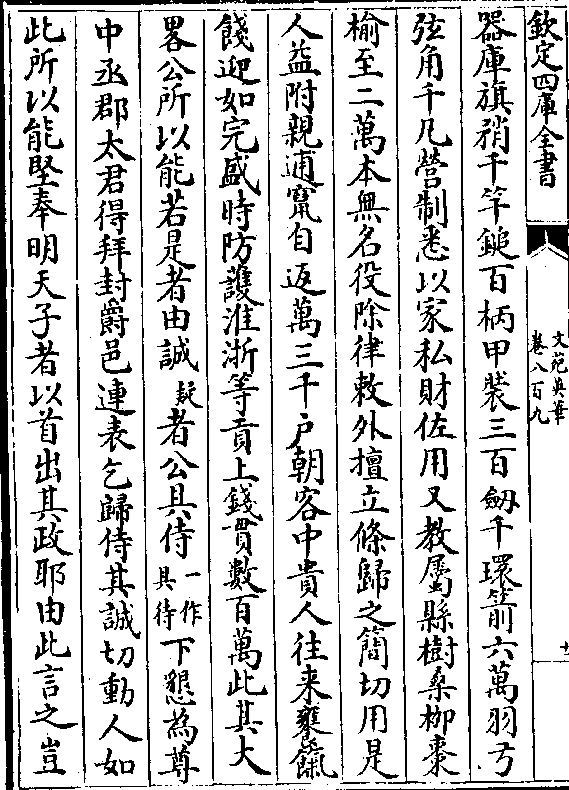 欽定四庫全書
文苑英華
卷八百九
器庫旗矟千竿鎚百柄甲裝三百劒千環箭六萬羽弓
弦角千凡營制悉以家私財佐用又教屬縣樹桑柳棗
榆至二萬本無名役除律敕外擅立條歸之簡切用是
人益附親逋竄自返萬三千戶朝客中貴人往来饔餼
餞迎如完盛時防護淮浙等貢上錢貫數百萬此其大
畧公所以能若是者由誠疑者公具侍一作具待下懇為尊
中丞郡太君得拜封爵邑連表乞歸侍其誠切動人如
此所以能堅奉明天子者以首出其政耶由此言之豈